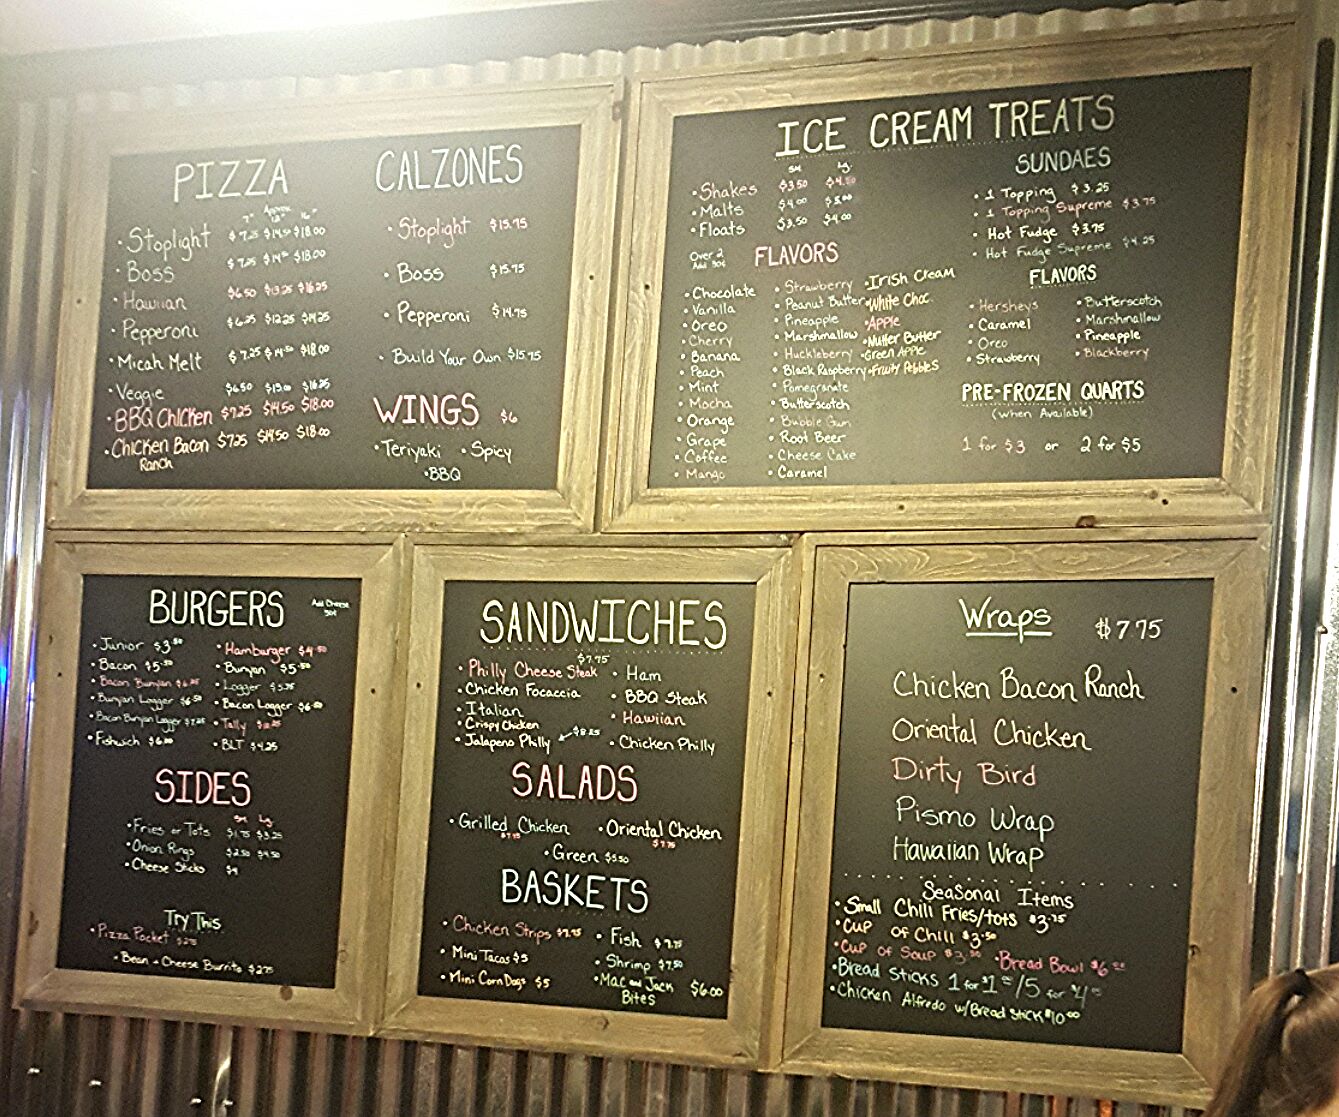 PIZZA
7" Approx. 12" 16"
• Stoplight $7.25 $14.50 $18.00
• Boss $7.25 $14.50 $18.00
• Hawiian $6.50 $13.25 $16.25
• Pepperoni $6.25 $12.25 $14.25
• Micah Melt $7.25 $14.50 $18.00
• Veggie $6.50 $16.25
• BBQ Chicken $7.25 $14.50 $18.00
• Chicken Bacon $7.25 $14.50 $18.00
Ranch
CALZONES
• Stoplight $15.75
• Boss $15.75
• Pepperoni $14.75
• Build Your Own $15.75
WINGS $6
• Teriyaki • Spicy
• BBQ
ICE CREAM TREATS
SM Lg.
• Shakes $3.50 $4.50
• Malts $4.00 $5.00
• Floats $3.50 $4.00
Over 2
Add 50¢
FLAVORS
• Chocolate
• Vanilla
• Oreo
• Cherry
• Banana
• Peach
• Mint
• Mocha
• Orange
• Grape
• Coffee
• Mango
• Strawberry
• Peanut Butter
• Pineapple
• Marshmallow
• Huckleberry
• Black Raspberry
• Pomegranate
• Butterscotch
• Bubble Gum
• Root Beer
• Cheese Cake
• Caramel
• Irish Cream
• White Choc.
• Apple
• Nutter Butter
• Green Apple
• Fruity Pebbles
SUNDAES
• 1 Topping $3.25
• 1 Topping Supreme $3.75
• Hot Fudge $3.75
• Hot Fudge Supreme $4.25
FLAVORS
• Hersheys
• Caramel
• Oreo
• Strawberry
• Butterscotch
• Marshmallow
• Pineapple
• Blackberry
PRE-FROZEN QUARTS
(When Available)
1 for $3 or 2 for $5
BURGERS Add Cheese
50¢
• Junior $3.50
• Bacon $5.50
• Bacon Bunyan $6.25
• Bunyan Logger $6.50
• Bacon Bunyan Logger $7.25
• Fishwich $6.00
• Hamburger $4.50
• Bunyan $5.50
• Logger $5.75
• Bacon Logger $6.50
• Tally
• BLT $4.25
SIDES
SM Lg.
• Fries or Tots $1.75 $3.25
• Onion Rings $2.50 $4.50
• Cheese Sticks $4
Try This
• Pizza Pocket $2.75
• Bean + Cheese Burrito $2.75
SANDWICHES
$7.75
• Philly Cheese Steak
• Chicken Focaccia
• Italian
• Crispy Chicken
• Jalapeno Philly $8.25
• Ham
• BBQ Steak
• Hawiian
• Chicken Philly
SALADS
• Grilled Chicken • Oriental Chicken
$7.75 $7.75
• Green $5.50
BASKETS
• Chicken Strips $7.75
• Mini Tacos $5
• Mini Corn Dogs $5
• Fish $7.75
• Shrimp $7.50
• Mac and Jack $6.00
Bites
Wraps $7.75
Chicken Bacon Ranch
Oriental Chicken
Dirty Bird
Pismo Wrap
Hawaiian Wrap
Seasonal Items
• Small Chili Fries/tots $3.75
• Cup of Chili $3.50
• Cup of Soup $3.50 • Bread Bowl
• Bread Sticks 1 for $1 /5 for $4
• Chicken Alfredo w/Bread Stick $10.00